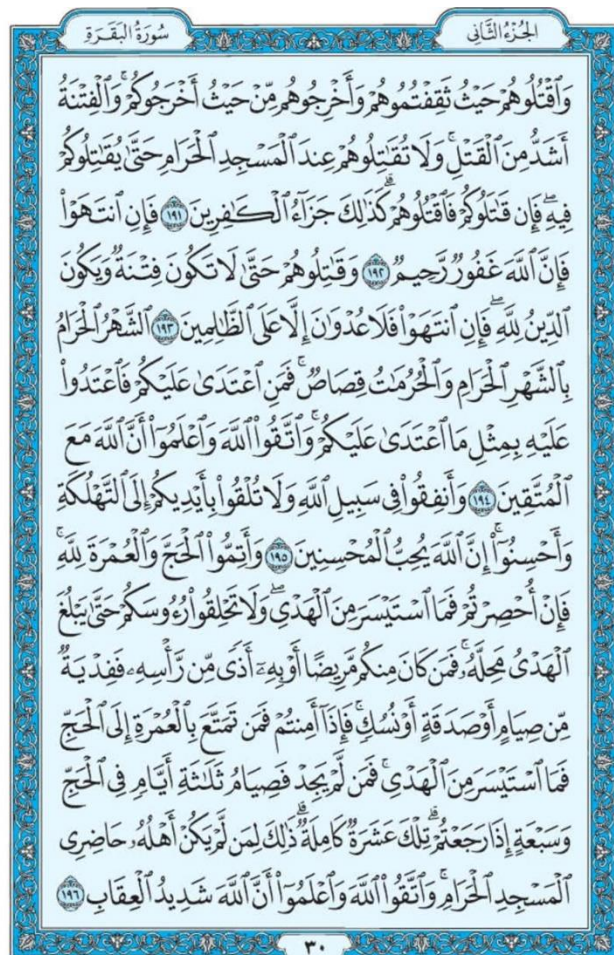 الجُزْءُ الثَّانِى
سُورَةُ البَقَرَةِ
وَٱقْتُلُوهُمْ حَيْثُ ثَقِفْتُمُوهُمْ وَأَخْرِجُوهُم مِّنْ حَيْثُ أَخْرَجُوكُمْ ۚ وَٱلْفِتْنَةُ
أَشَدُّ مِنَ ٱلْقَتْلِ ۚ وَلَا تُقَـٰتِلُوهُمْ عِندَ ٱلْمَسْجِدِ ٱلْحَرَامِ حَتَّىٰ يُقَـٰتِلُوكُمْ
فِيهِ ۖ فَإِن قَـٰتَلُوكُمْ فَٱقْتُلُوهُمْ ۗ كَذَٰلِكَ جَزَآءُ ٱلْكَـٰفِرِينَ ١٩١ فَإِنِ ٱنتَهَوْا۟
فَإِنَّ ٱللَّهَ غَفُورٌ رَّحِيمٌ ١٩٢ وَقَـٰتِلُوهُمْ حَتَّىٰ لَا تَكُونَ فِتْنَةٌ وَيَكُونَ
ٱلدِّينُ لِلَّهِ ۖ فَإِنِ ٱنتَهَوْا۟ فَلَا عُدْوَٰنَ إِلَّا عَلَى ٱلظَّـٰلِمِينَ ١٩٣ ٱلشَّهْرُ ٱلْحَرَامُ
بِٱلشَّهْرِ ٱلْحَرَامِ وَٱلْحُرُمَـٰتُ قِصَاصٌ ۚ فَمَنِ ٱعْتَدَىٰ عَلَيْكُمْ فَٱعْتَدُوا۟
عَلَيْهِ بِمِثْلِ مَا ٱعْتَدَىٰ عَلَيْكُمْ ۚ وَٱتَّقُوا۟ ٱللَّهَ وَٱعْلَمُوٓا۟ أَنَّ ٱللَّهَ مَعَ
ٱلْمُتَّقِينَ ١٩٤ وَأَنفِقُوا۟ فِى سَبِيلِ ٱللَّهِ وَلَا تُلْقُوا۟ بِأَيْدِيكُمْ إِلَى ٱلتَّهْلُكَةِ
وَأَحْسِنُوٓا۟ ۛ إِنَّ ٱللَّهَ يُحِبُّ ٱلْمُحْسِنِينَ ١٩٥ وَأَتِمُّوا۟ ٱلْحَجَّ وَٱلْعُمْرَةَ لِلَّهِ ۚ
فَإِنْ أُحْصِرْتُمْ فَمَا ٱسْتَيْسَرَ مِنَ ٱلْهَدْىِ ۖ وَلَا تَحْلِقُوا۟ رُءُوسَكُمْ حَتَّىٰ يَبْلُغَ
ٱلْهَدْىُ مَحِلَّهُۥ ۚ فَمَن كَانَ مِنكُم مَّرِيضًا أَوْ بِهِۦٓ أَذًى مِّن رَّأْسِهِۦ فَفِدْيَةٌ
مِّن صِيَامٍ أَوْ صَدَقَةٍ أَوْ نُسُكٍ ۚ فَإِذَآ أَمِنتُمْ فَمَن تَمَتَّعَ بِٱلْعُمْرَةِ إِلَى ٱلْحَجِّ
فَمَا ٱسْتَيْسَرَ مِنَ ٱلْهَدْىِ ۚ فَمَن لَّمْ يَجِدْ فَصِيَامُ ثَلَـٰثَةِ أَيَّامٍ فِى ٱلْحَجِّ
وَسَبْعَةٍ إِذَا رَجَعْتُمْ ۗ تِلْكَ عَشَرَةٌ كَامِلَةٌ ۗ ذَٰلِكَ لِمَن لَّمْ يَكُنْ أَهْلُهُۥ حَاضِرِى
ٱلْمَسْجِدِ ٱلْحَرَامِ ۚ وَٱتَّقُوا۟ ٱللَّهَ وَٱعْلَمُوٓا۟ أَنَّ ٱللَّهَ شَدِيدُ ٱلْعِقَابِ ١٩٦
٣٠